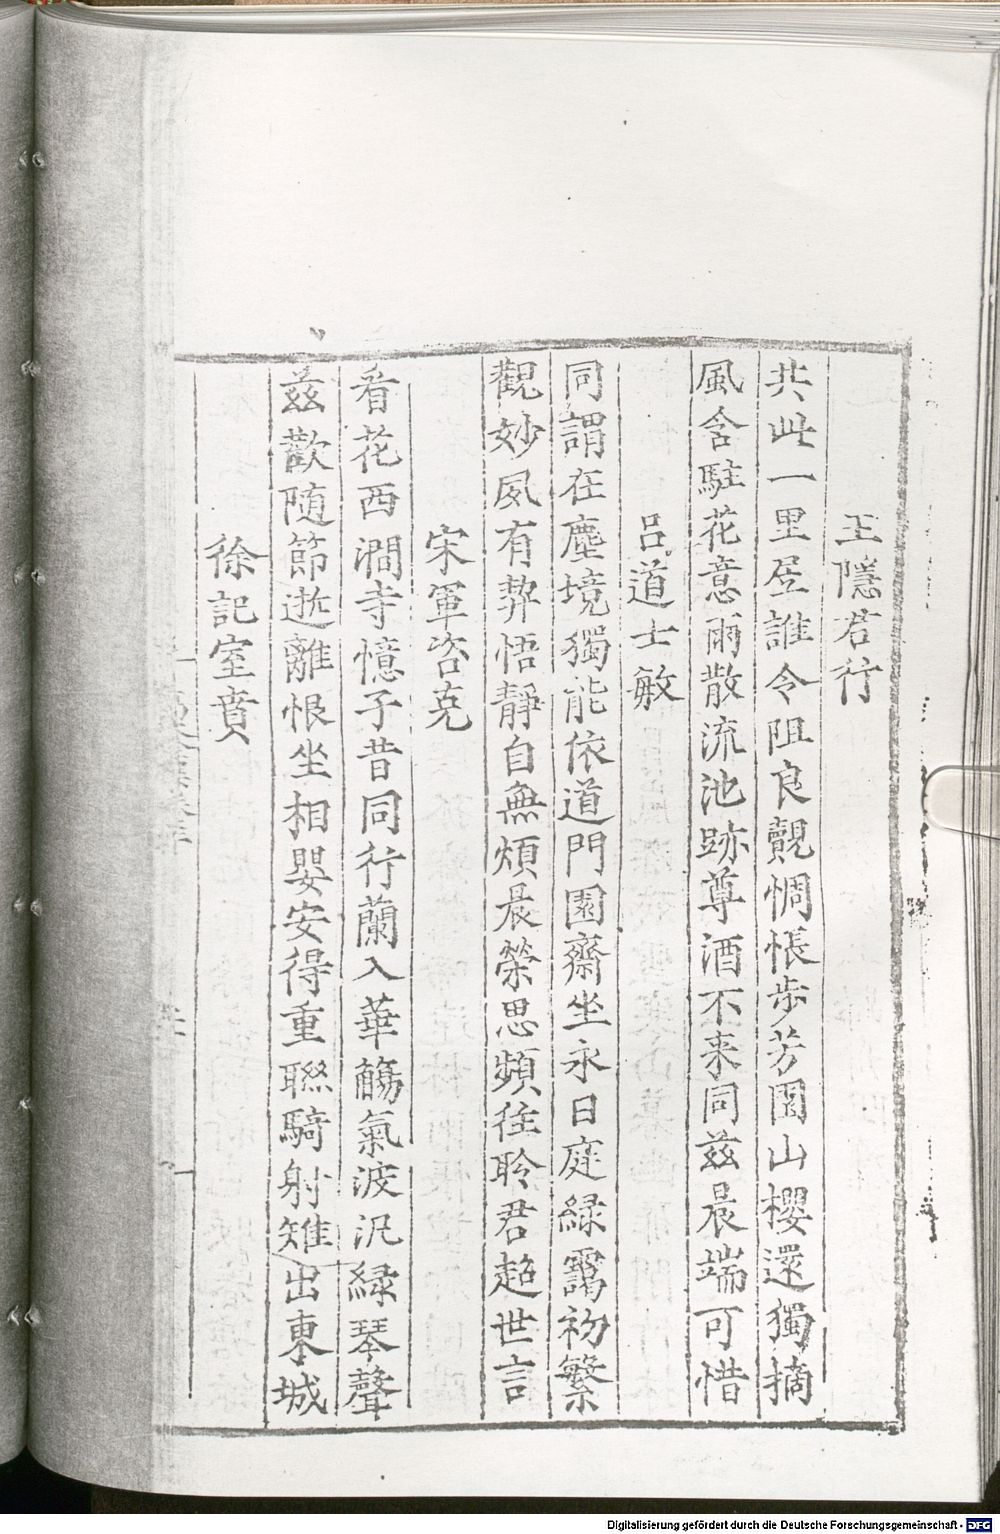 王隱君行
共此一里居誰令阻良覿惆悵步芳園山櫻還獨摘
風含駐花意雨散流池跡尊酒不来同茲晨端可惜
呂道士敏
同謂在塵境獨能依道門園齋坐永日庭緑靄初繁
觀妙夙有契悟靜自無煩晨榮思頻往聆君超世言
宋軍咨克
看花西澗寺憶子昔同行蘭入華觴氣波汎緑琴聲
茲歡随節逝離恨坐相嬰安得重聮騎射雉出東城
徐記室賁
Digitalisierung gefördert durch die Deutsche Forschungsgemeinschaft - DFG